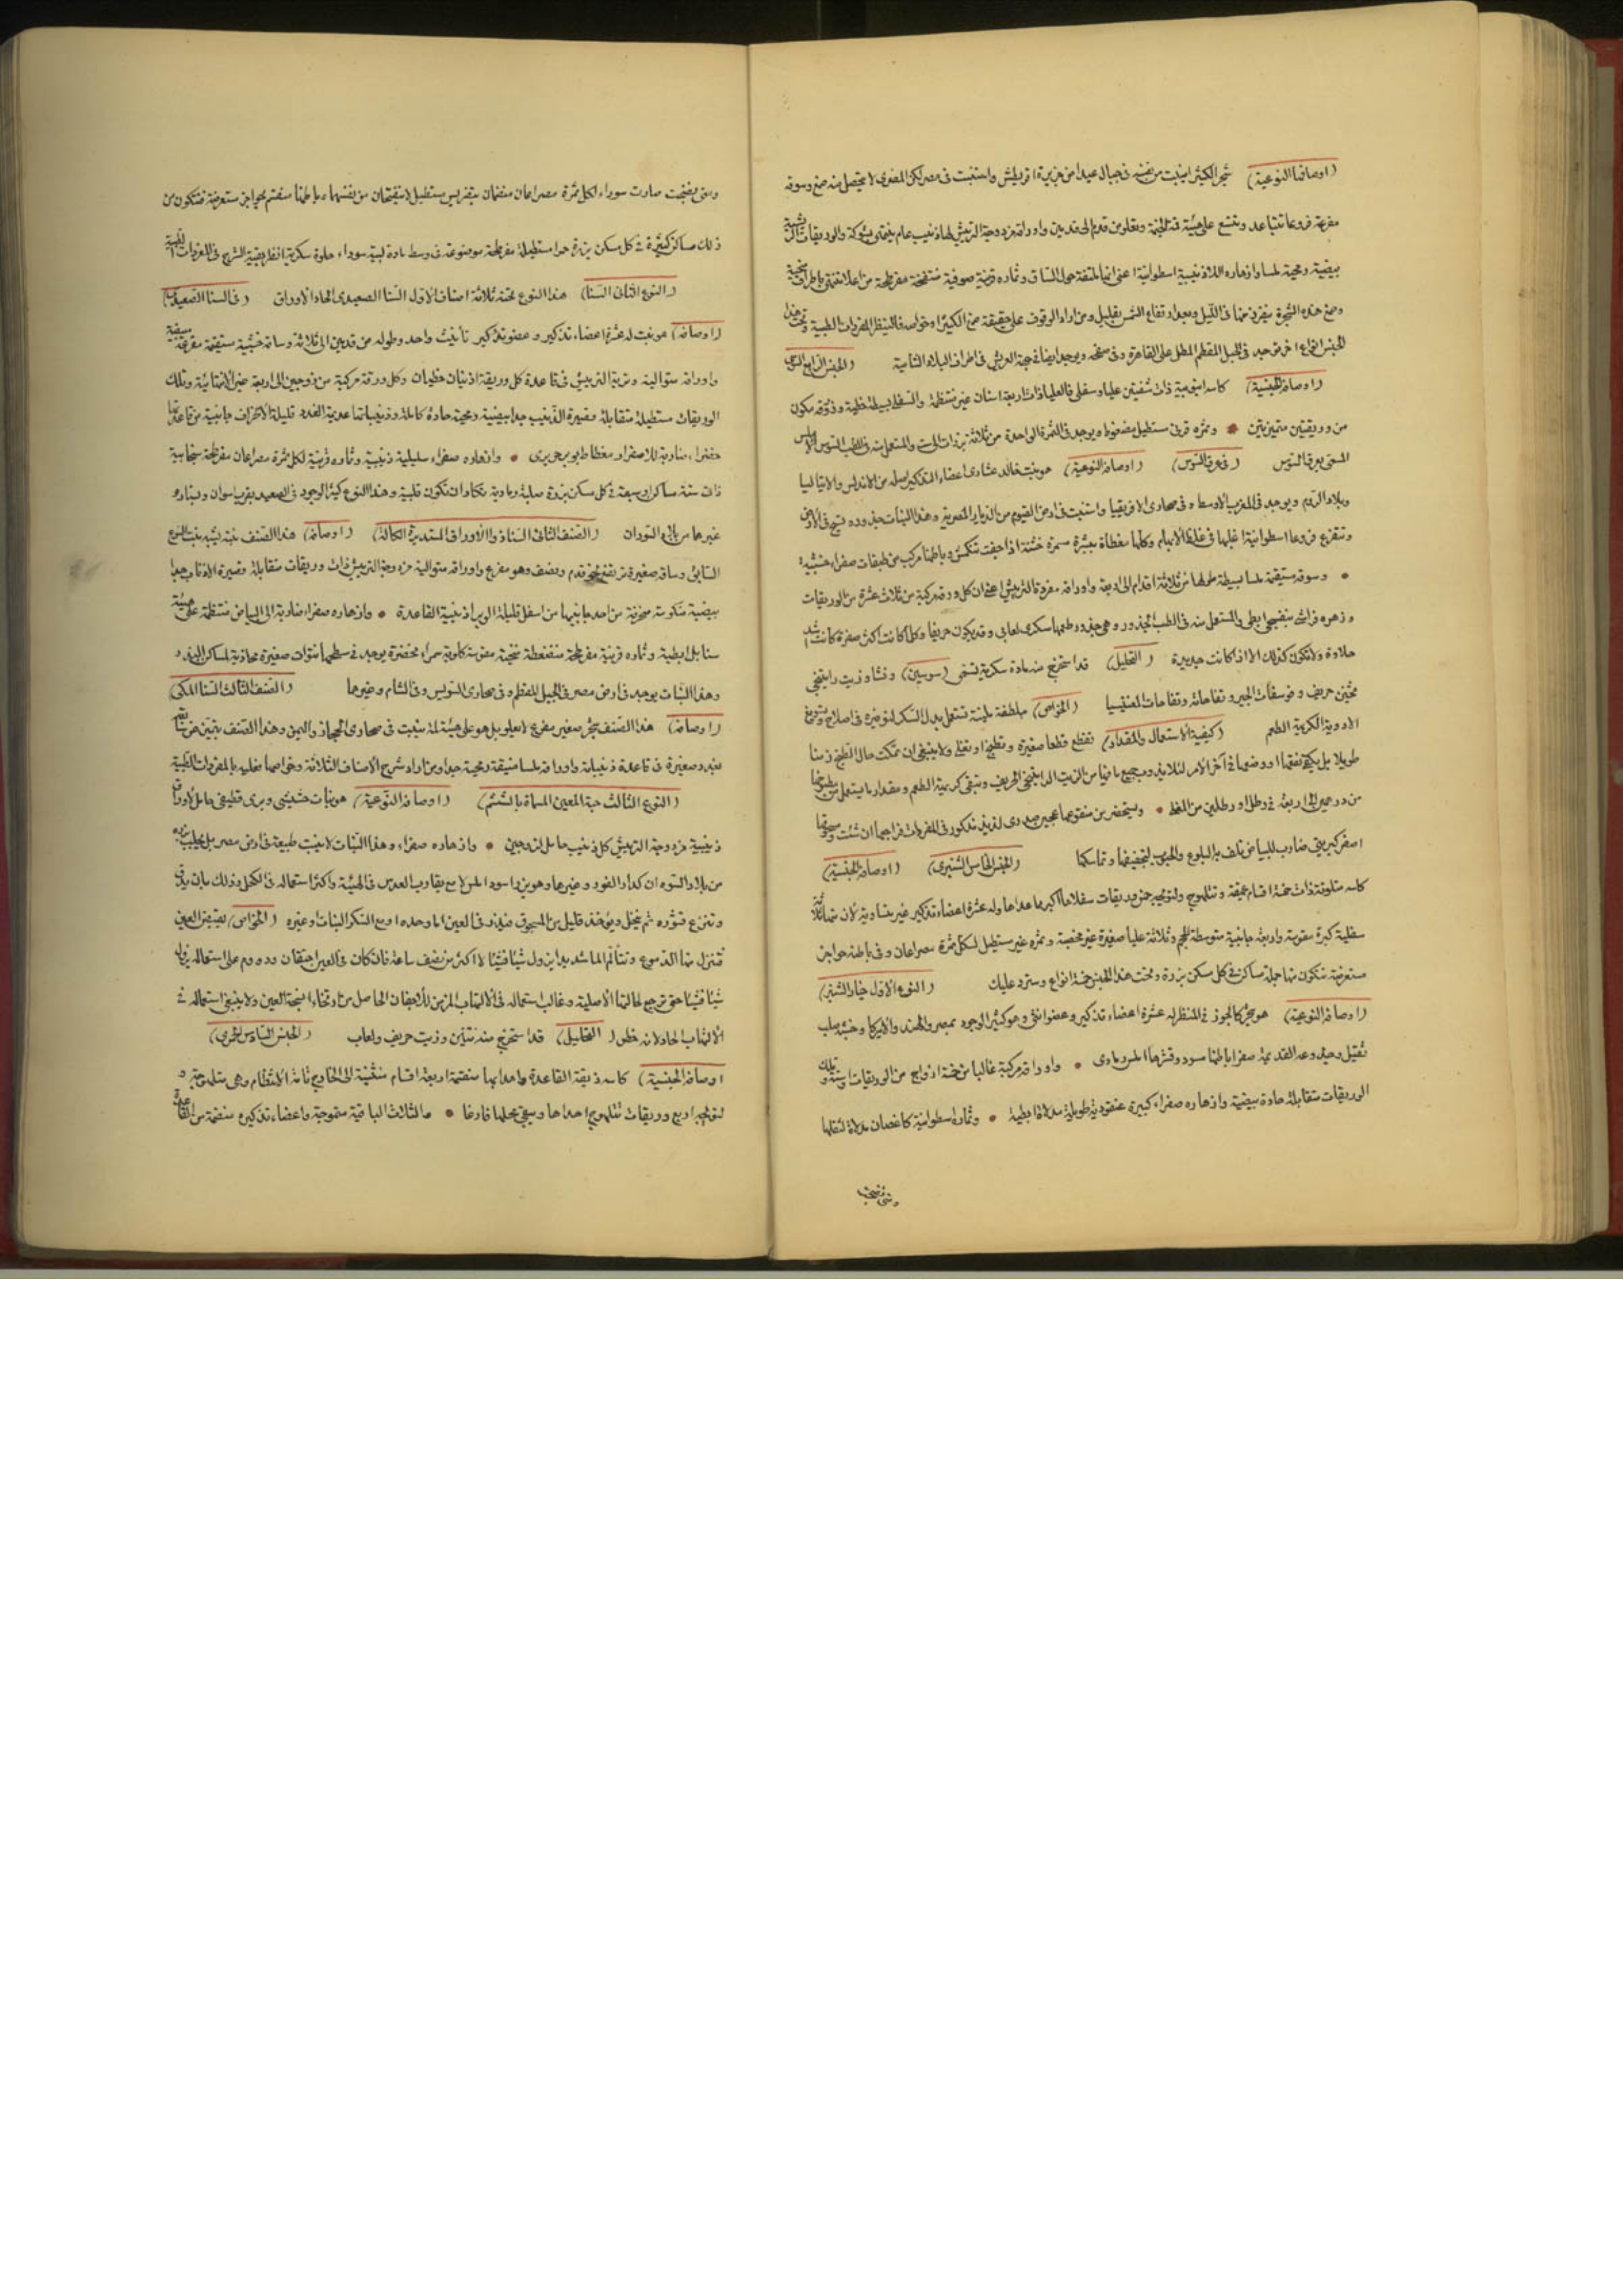 (اوصافه النوعية) شجر الكثيرا ينبت من نفسه فى جبال عيدا من جزيرة اقريطش واستنبت فى مصر لكن المصرى لا يتحصل منه صمغ وسوقه
مفرعة فروعا تتباعد وتتسع على هيئة قمة الخيمة وتعلو من قدم الى قدمين واوراقه مزدوجة التريش لها ذنيب عام ينتهى بشوكة والوريقات
بيضية رمحية ملسا وازهاره اللاذنيبية اسطوانية اعنى انها ملتفة حول الساق وثماره قرنية صوفية منتفخة مفرطحة من اعلا تنتهى باطراف
وصمغ هذه الشجرة يتفرز منها فى الليل وبعد ارتفاع الشمس بقليل ومن اراد الوقوف على حقيقة صمغ الكثيرا وخواصه فلينظر المفردات الطبية وتحت هذا
الجنس انواع اخر توجد فى الجبل المقطم المطل على القاهرة وفى سفحه ويوجد ايضا فى جهة العريش فى اطراف البلاد الشامية (الجنس الرابع السوس
(اوصافه الجنسية) كاسه انبوبية ذات شفتين عليا وسفلى فالعليا ذات اربعة اسنان غير منتظمة والسفلى بسيطة خطية وزورقه مكون
من وريقتين متميزتين • وثمره قرنى مستطيل مضغوط ويوجد فى الثمرة الواحدة من ثلاثة بزرات الى ست والمستعمل منه فى الطب السوس الاملس
المسمى بعرق السوس (فى عرق السوس) (اوصافه النوعية) هو نبت خالد عشارى اعضاء التذكير اصله من الاندلس والايتاليا
وبلاد الروم ويوجد فى المغرب الاوسط وفى صحارى الافريقيا واستنبت فى ارض الفيوم من الديار المصرية وهذا النبات جذوره تسبح فى الارض
وتتفرع فروعا اسطوانية اغلبها فى غلظ الابهام وكلها مغطاة ببشرة سمرة خشنة اذا جفت تنكمش وباطنها مركب من طبقات صفراء خشبية
• وسوقه مستقيمة ملسا بسيطة طولها من ثلاثة اقدام الى اربعة واوراقه مفردة التريش اعنى ان كل ورقة مركبة من ثلاث عشرة من الوريقات
وزهره فراشى بنفسجى ابطى والمستعمل منه فى الطب الجذور وهى جذور طعمها سكرى لعابى وقد يكون حريفا وكلما كانت اكثر صفرة كانت اشد
حلاوة ولا تكون كذلك الا اذا كانت جديدة (التحليل) قد استخرج منه مادة سكرية تسمى (سوسين) ونشا وزيت راتينجى
ثخين حريف وفوسفات الجير وتفاحاته وتفاحات المغنيسيا (الخواص) ملطفة ملينة تستعمل بدل السكر لتوفيره فى اصلاح وتسويغ
الادوية الكريهة الطعم (كيفية الاستعمال والمقدار) تقطع قطعا صغيرة وتطبخ او تغلى ولا ينبغى ان تمكث حال الطبخ زمنا
طويلا بل يكفى نقعها او وضعها فى آخر الامر لئلا يذوب جميع ما فيها من الزيت الراتينجى الحريف وتبقى كريهة الطعم ومقدار ما يستعمل من مطبوخها
من درهمين الى اربعة فى رطل او رطلين من المغلى • ويستحضر من منقوعها عجين صدرى لذيذ مذكور فى المفردات فراجعها ان شئت ومسحوقها
اصفر كبريتى ضارب للبياض تلف به البلوع والحبوب لتجفيفها وتماسكها (الجنس الخامس الشنبرى) (اوصافه الجنسية)
كاسه متلونة ذات خمسة اقسام عميقة وتتلموج ولتويجه خمس وريقات سفلاها اكبر مما عداها وله عشرة اعضاء تذكير غير متساوية لان منها ثلاثة
سفلية كبيرة مقوسة واربعة جانبية متوسطة الحجم وثلاثة عليا صغيرة غير مخصبة وثمره غير مستطيل لكل ثمرة مصراعان وفى باطنه حواجز
مستعرضة تتكون منها جملة مساكن فى كل مسكن بزرة وتحت هذا الجنس خمسة انواع وسترد عليك (النوع الاول خيار الشنبر)
(اوصافه النوعية) هو شجر كالجوز فى المنظر له عشرة اعضاء تذكير وعضو انثى وهو كثير الوجود بمصر والهند والاميركا وخشبه صلب
ثقيل وجذوعه القديمة صفرا باطنها سود وقشرها املس رمادى • واوراقه مركبة غالبا من خمسة ازواج من الوريقات او ستة وتلك
الوريقات متقابلة حادة بيضية وازهاره صفراء كبيرة عنقودية طويلة مدلاة ابطية • وثماره اسطوانية كاغصان مدلاة لثقلها
ومتى نضجت
ومتى نضجت صارت سوداء لكل ثمرة مصراعان منضمان بتقريس مستطيل لا ينفتحان من نفسهما وباطنها منقسم بحواجز مستعرضة فتتكون من
ذلك مساكن كثيرة فى كل مسكن بزرة حمرا مستطيلة مفرطحة موضوعة فى وسط مادة لبية سوداء حلوة سكرية انظر بقية الشرح فى المفردات الطبية
(النوع الثانى السنا) هذا النوع تحته ثلاثة اصناف الاول السنا الصعيدى الحاد الاوراق (فى السنا الصعيدى)
(اوصافه) هو نبت له عشرة اعضاء تذكير وعضو تأنيث واحد وطوله من قدمين الى ثلاثة وساقه خشبية مستقيمة مفرعة مبيضة
واوراقه متوالية وترية التريش فى قاعدة كل وريقة اذنيان خطيان وكل ورقة مركبة من زوجين الى اربعة غير الانتهائية وتلك
الوريقات مستطيلة متقابلة قصيرة الذنيب جدا بيضية رمحية حادة كاملة وذنيباتها عديمة الغدد قليلة الانحراف جانبية من قاعدتها
خضراء ضاربة للاصفرار مغطاة بوبر حريرى • وازهاره صفراء سنبلية ذنيبية وثماره قرنية لكل ثمرة مصراعان مفرطحة سنجابية
ذات ستة مساكن او سبعة فى كل مسكن بزرة صلبة رمادية تكاد ان تكون قلبية وهذا النوع كثير الوجود فى الصعيد بقرب اسوان وسنار و
غيرها من بلاد السودان (الصنف الثانى السنا ذو الاوراق المستديرة الكالة) (اوصافه) هذا الصنف نبته يشبه نبت النوع
السابق وساقه صغيرة ترتفع نحو قدم ونصف وهو مفرع واوراقه متوالية مزدوجة التريش ذات وريقات متقابلة قصيرة الاذناب جدا
بيضية منكوسة منحرفة من احد جانبيها من اسفل قليلة الوبر اذنيبية القاعدة • وازهاره صفراء ضاربة الى البياض منتظمة على هيئة
سنابل ابطية وثماره قرنية مفرطحة منضغطة منحنية مقوسة كلوية سمراء مخضرة يوجد فى سطحها نتوات صغيرة محاذية لمساكن البزور
وهذا النبات يوجد فى ارض مصر فى الجبل المقطم وفى صحارى السويس وفى الشام وغيرها (الصنف الثالث السنا المكى)
(اوصافه) هذا الصنف شجر صغير مفرع لا يعلو بل هو على هيئة لمة ينبت فى صحارى الحجاز واليمن وهذا الصنف يتميز عن سابقه
بغدد صغيرة فى قاعدة ذنيباته واوراقه ملسا ضيقة رمحية جدا ومن اراد شرح الاصناف الثلاثة وخواصها فعليه بالمفردات الطبية
(النوع الثالث حبة المعين المسماة بالششم) (اوصافه النوعية) هو نبات حشيشى وبرى قطيفى حامل لاوراق
ذنيبية مزدوجة التريش كل ذنيب حامل لزوجين • وازهاره صفراء وهذا النبات لا ينبت طبيعة فى ارض مصر بل يجلب بزره
من بلاد السودان كدارالفور وغيرها وهو بزر اسود املس لامع يقارب العدس فى الهيئة واكثر استعماله فى الكحل وذلك بان يدق
وتنزع قشوره ثم ينخل ويؤخذ قليل من المسحوق فيذر فى العين اما وحده او مع السكر النبات او غيره (الخواص) يقبض العين
فتنزل منها الدموع وتتألم الما شديدا يزول شيئا فشيئا لا اكثر من نصف ساعة فان كان فى العين احتقان ودووم على استعماله يزول
شيئا فشيئا حتى ترجع لحالتها الاصلية وغالب استعماله فى الالتهاب المزمن للاجفان الحاصل من ارتخاء انسجة العين ولا ينبغى استعماله فى
الالتهاب الحاد لانه خطر (التحليل) قد استخرج منه تنين وزيت حريف ولعاب (الجنس السادس التمرى)
(اوصافه الجنسية) كاسه دقيقة القاعدة واهدابها منقسمة اربعة اقسام منثنية الى الخارج تامة الانتظام وهى متلموجة و
لتويجه اربع وريقات تتلموج احداها ويبقى محلها فارغا • والثلاث الباقية متموجة واعضاء تذكيره منضمة من القاعدة